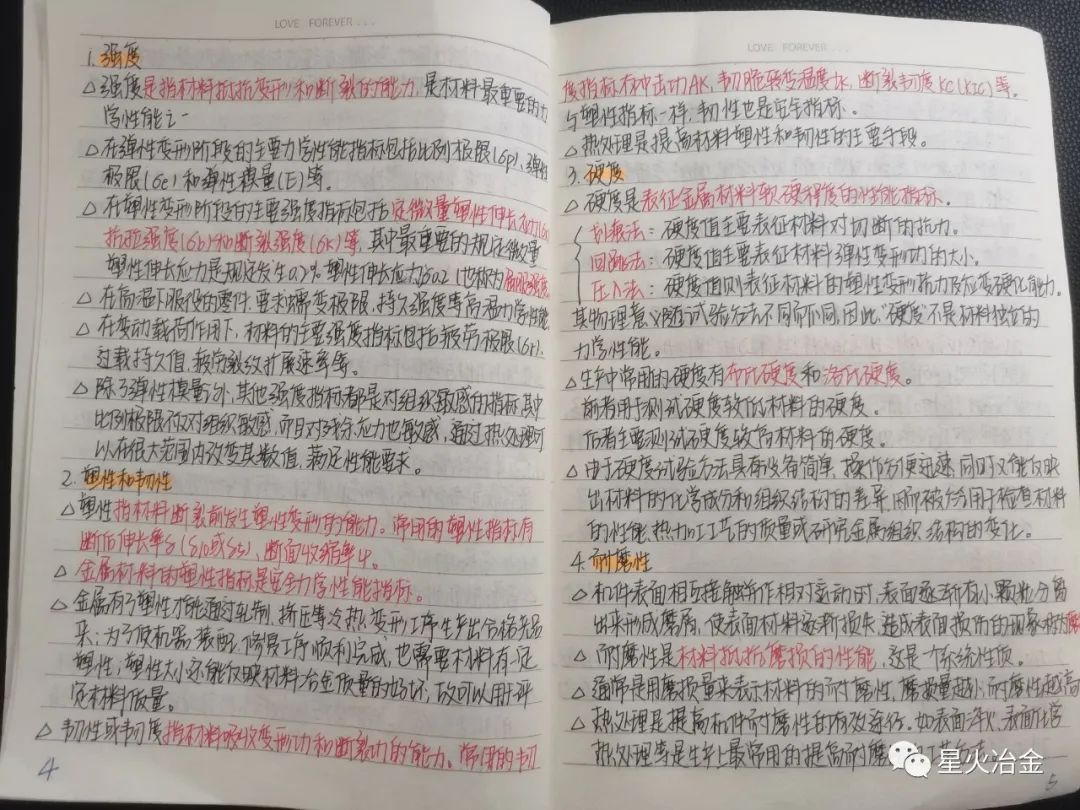 LOVE FOREVER...
1. 强度
△ 强度是指材料抵抗变形和断裂的能力,是材料最重要的力
学性能之一
△ 在弹性变形阶段的主要力学性能指标包括比例极限(σp)、弹性
极限(σe)和弹性模量(E)等。
△ 在塑性变形阶段的主要强度指标包括定微量塑性伸长应力
抗拉强度(σb)和断裂强度(σk)等,其中最重要的规定微量
塑性伸长应力是规定发生0.2%塑性伸长应力σ0.2(也称为屈服强度
△ 在高温下服役的零件,要求蠕变极限、持久强度等高温力学性能
△ 在变动载荷作用下,材料的主要强度指标包括疲劳极限(σr)、
过载持久值、疲劳裂纹扩展速率等。
△ 除了弹性模量外,其他强度指标都是对组织敏感的指标,其中
比例极限不仅对组织敏感,而且对残余应力也敏感,通过热处理可
以在很大范围内改变其数值,满足性能要求。
2. 塑性和韧性
△ 塑性指材料断裂前发生塑性变形的能力。常用的塑性指标有
断后伸长率δ(δ10或δ5)、断面收缩率ψ。
△ 金属材料的塑性指标是安全力学性能指标。
△ 金属有了塑性才能通过轧制、挤压等冷热变形工序生产出合格产品
来;为了使机器装配、修复工序顺利完成,也需要材料有一定
塑性;塑性大小还能反映材料冶金质量的好坏,故可以用于评
定材料质量。
△ 韧性或韧度指材料吸收变形功和断裂功的能力。常用的韧
4
LOVE FOREVER...
度指标有冲击功AK,韧脆转变温度tK,断裂韧度KC(KIC)等。
与塑性指标一样,韧性也是安全指标。
△ 热处理是提高材料塑性和韧性的主要手段。
3. 硬度
△ 硬度是表征金属材料软硬程度的性能指标。
划痕法:硬度值主要表征材料对切断的抗力。
回跳法:硬度值主要表征材料弹性变形功的大小。
压入法:硬度值则表征材料的塑性变形抗力及应变硬化能力。
其物理意义随试验方法不同而不同,因此,“硬度”不是材料独立的
力学性能。
△ 生产中常用的硬度有布氏硬度和洛氏硬度。
前者用于测试硬度较低材料的硬度。
后者主要测试硬度较高材料的硬度。
△ 由于硬度试验方法具有设备简单、操作方便迅速,同时又能反映
出材料的化学成分和组织结构的差异,因而被用于检查材料
的性能、热加工工艺的质量或研究金属组织结构的变化。
4. 耐磨性
△ 机件表面相互接触并作相对运动时,表面逐渐有小颗粒分离
出来形成磨屑,使表面材料逐渐损失、造成表面损伤的现象称为磨
△ 耐磨性是材料抵抗磨损的性能,这是一个系统性质。
△ 通常是用磨损量来表示材料的耐磨性,磨损量越小,耐磨性越高
△ 热处理是提高机件耐磨性的有效途径,如表面淬火、表面化学
热处理等是生产上最常用的提高耐磨
5
星火冶金